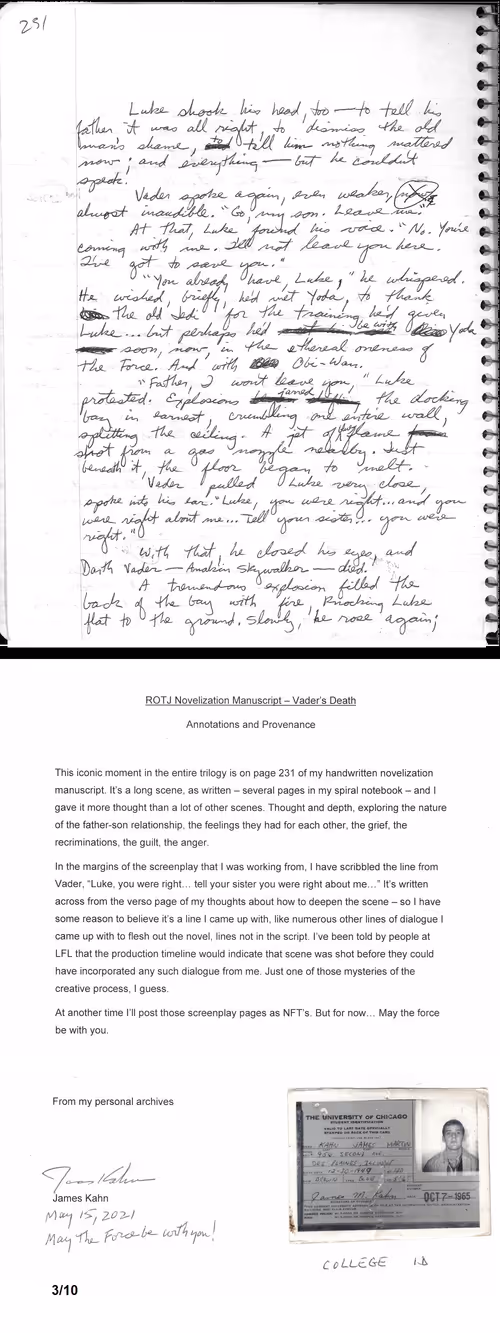 231
Luke shook his head, too — to tell his
father it was all right, to dismiss the old
man's shame, to tell him nothing mattered
now; and everything — but he couldn't
speak.
Vader spoke again, even weaker, now
almost inaudible. "Go, my son. Leave me."
At that, Luke found his voice. "No. You're
coming with me. I'll not leave you here.
I've got to save you."
"You already have, Luke," he whispered.
He wished, briefly, he'd met Yoda, to thank
the old Jedi for the training he'd given
Luke... but perhaps he'd be with Yoda
soon, now, in the ethereal oneness of
the Force. And with Obi-Wan.
"Father, I won't leave you," Luke
protested. Explosions jarred the docking
bay in earnest, crumbling one entire wall,
splitting the ceiling. A jet of blue flame
shot from a gas nozzle nearby. Just
beneath it, the floor began to melt.
Vader pulled Luke very close,
spoke into his ear. "Luke, you were right... and you
were right about me... Tell your sister... you were
right."
With that, he closed his eyes, and
Darth Vader — Anakin Skywalker — died.
A tremendous explosion filled the
back of the bay with fire, knocking Luke
flat to the ground. Slowly, he rose again;
ROTJ Novelization Manuscript – Vader's Death
Annotations and Provenance
This iconic moment in the entire trilogy is on page 231 of my handwritten novelization
manuscript. It's a long scene, as written – several pages in my spiral notebook – and I
gave it more thought than a lot of other scenes. Thought and depth, exploring the nature
of the father-son relationship, the feelings they had for each other, the grief, the
recriminations, the guilt, the anger.
In the margins of the screenplay that I was working from, I have scribbled the line from
Vader, "Luke, you were right… tell your sister you were right about me…" It's written
across from the verso page of my thoughts about how to deepen the scene – so I have
some reason to believe it's a line I came up with, like numerous other lines of dialogue I
came up with to flesh out the novel, lines not in the script. I've been told by people at
LFL that the production timeline would indicate that scene was shot before they could
have incorporated any such dialogue from me. Just one of those mysteries of the
creative process, I guess.
At another time I'll post those screenplay pages as NFT's. But for now… May the force
be with you.
From my personal archives
James Kahn
James Kahn
May 15, 2021
May The Force be with you!
3/10
THE UNIVERSITY OF CHICAGO
STUDENT IDENTIFICATION
KAHN JAMES MARTIN
DES PLAINES, ILLINOIS
James M. Kahn
OCT 7 - 1965
COLLEGE ID